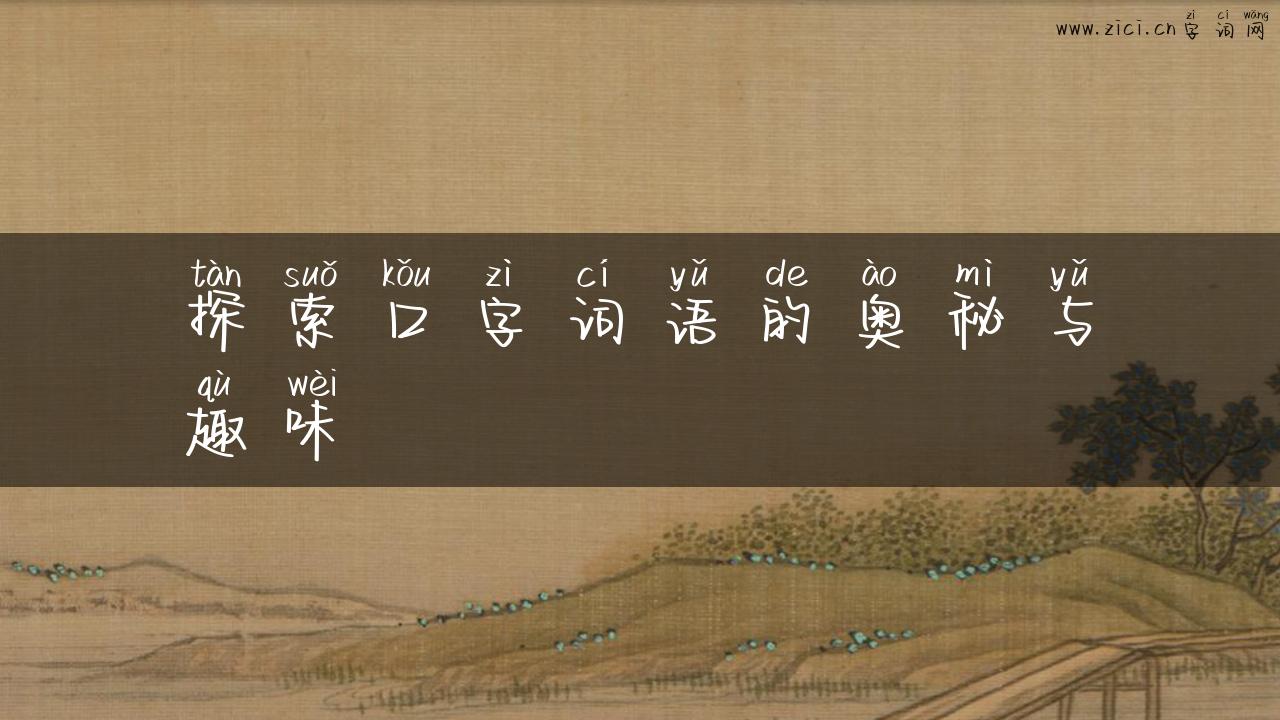 zì cí wǎng
www.zici.cn字词网
tàn suǒ kǒu zì cí yǔ de ào mì yǔ
探索口字词语的奥秘与
qù wèi
趣味